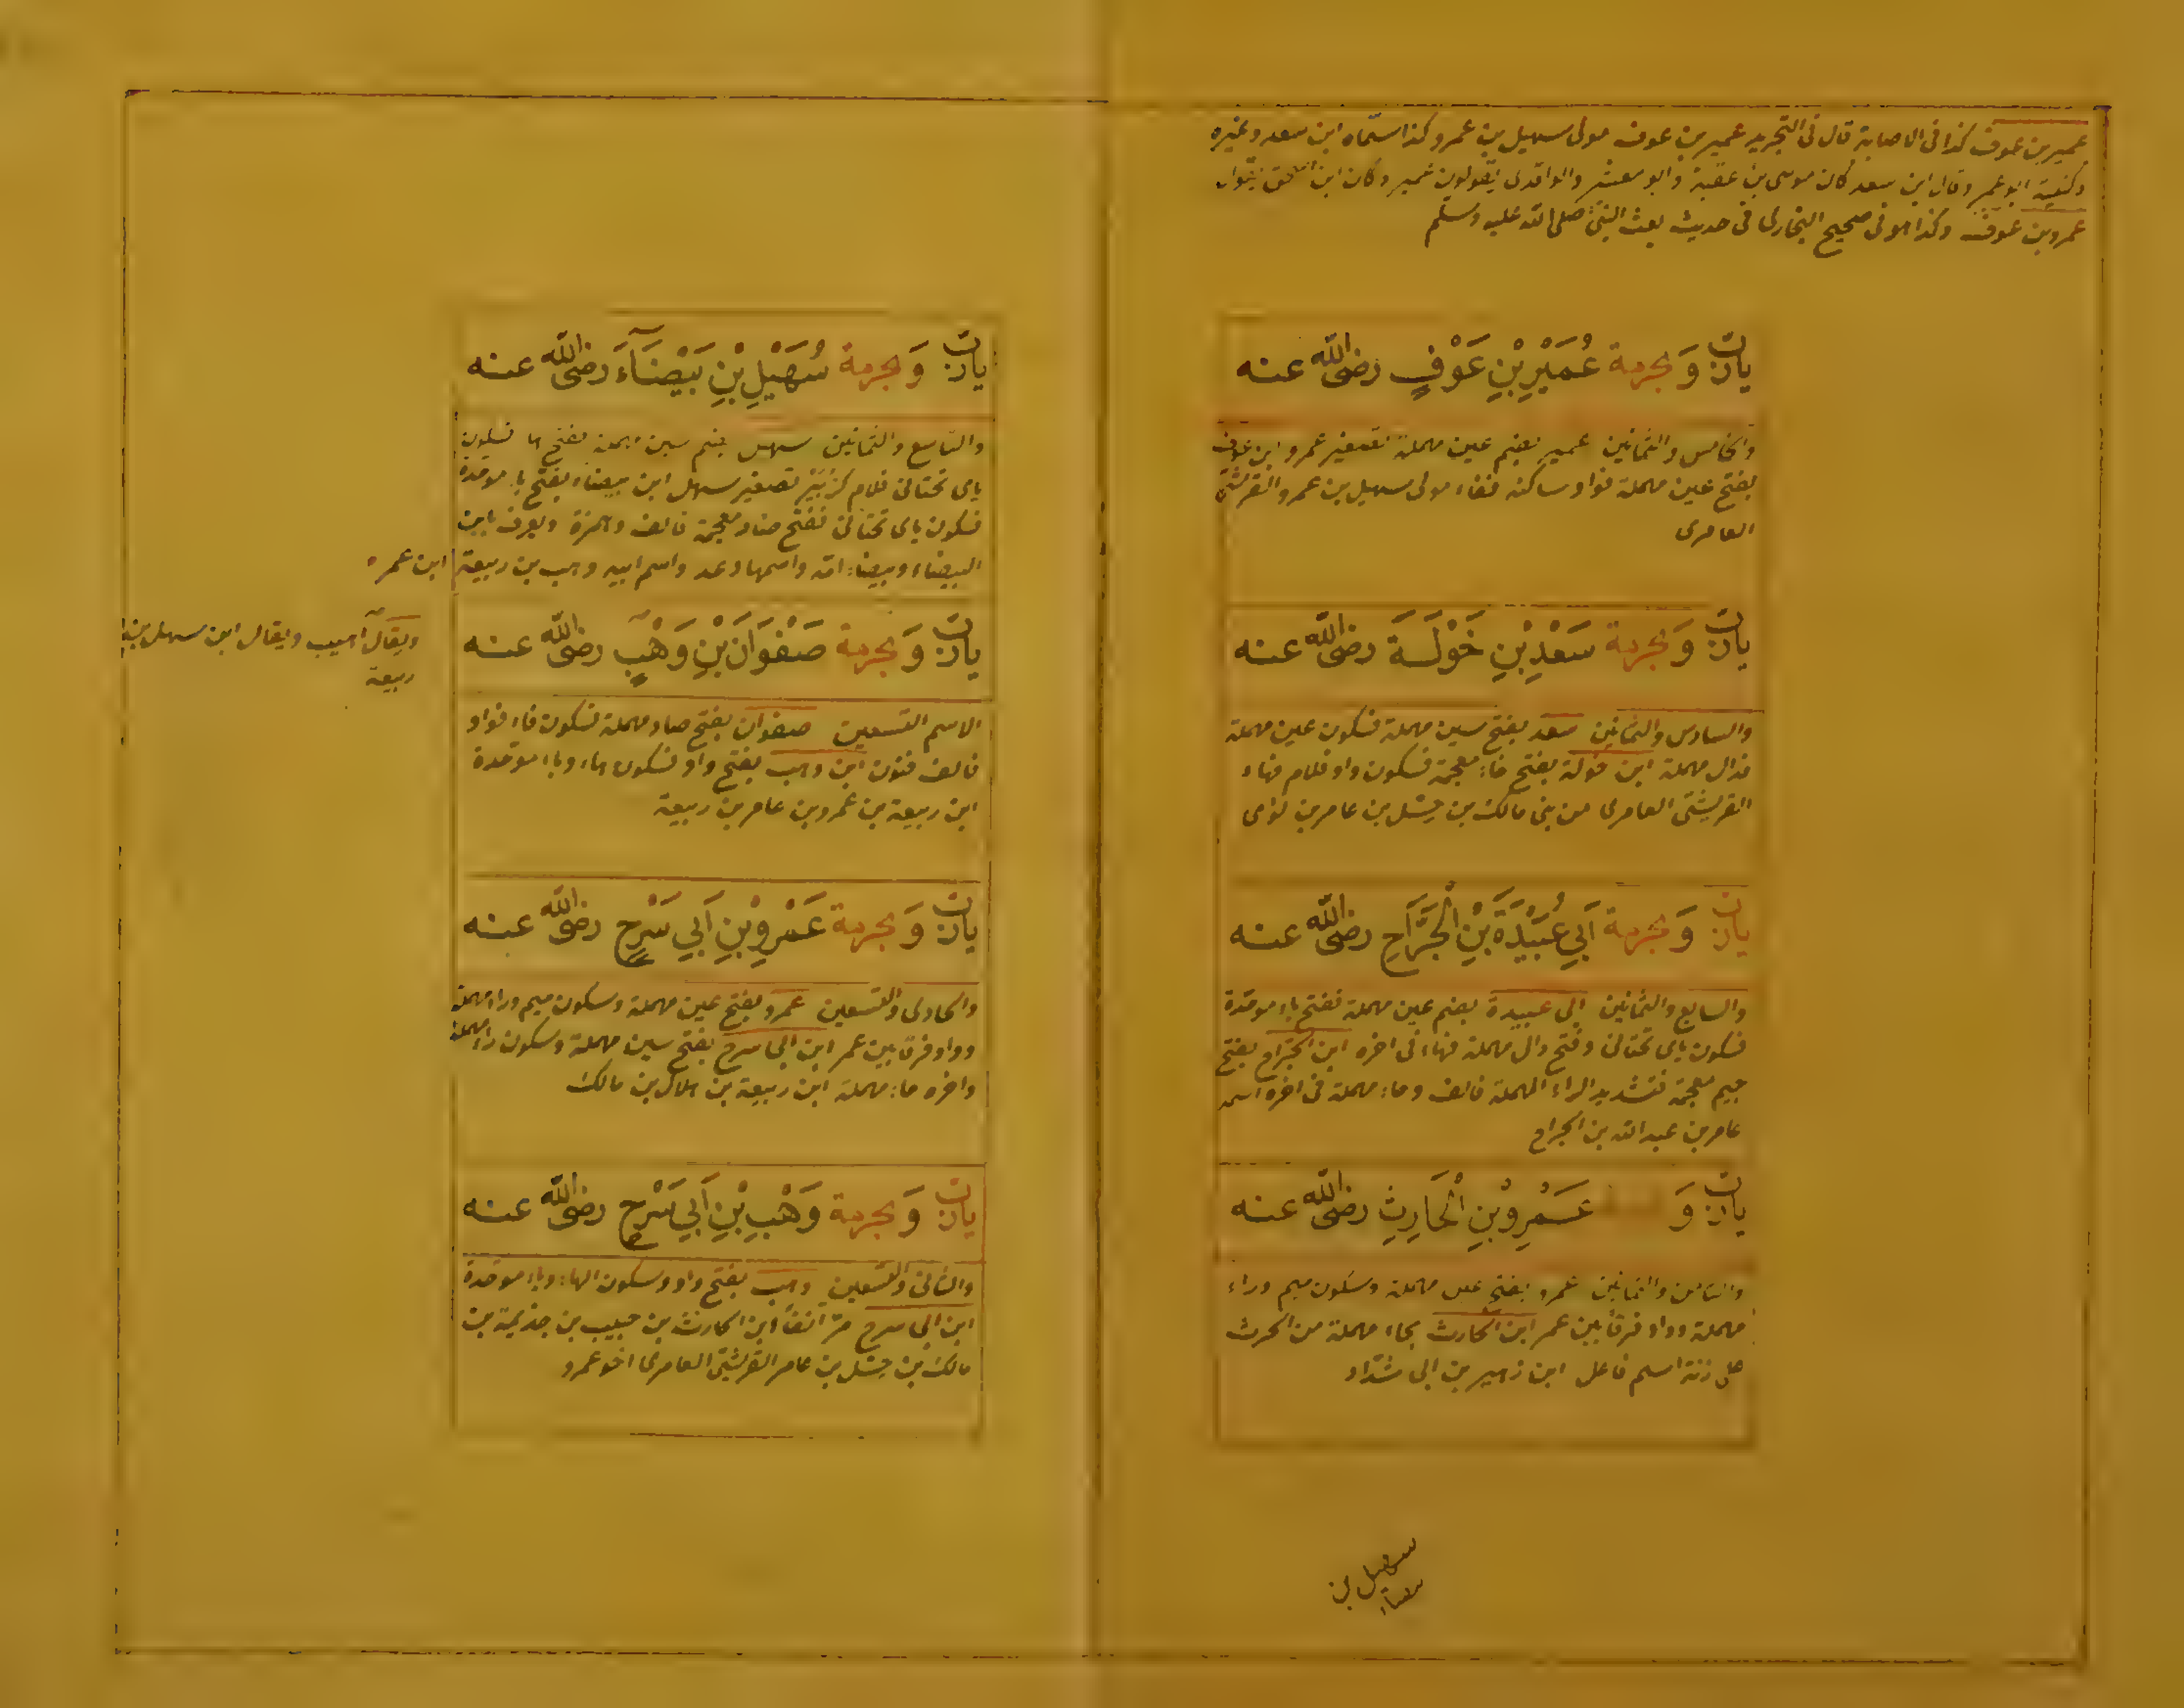 عمير بن عوف كذا فى الاصابة قال فى التجريد عمير بن عوف مولى سهيل بن عمرو كذا سماه ابن سعد وغيره
وكنيته ابو عمر وقال ابن سعد كان موسى بن عقبة وابو معشر والواقدى يقولون عمير وكان ابن اسحق يقول
عمرو بن عوف وكذا هو فى صحيح البخارى فى حديث بعث النبى صلى الله عليه وسلم
يارب وَبحرمة عُمَيْرِ بْنِ عَوْفٍ رضى الله عنه
والخامس والثمانين عمير بضم عين مهملة تصغير عمرو ابن عوف
بفتح عين مهملة فواو ساكنة ففاء مولى سهيل بن عمرو القرشى
العامرى
يارب وَبحرمة سَعْدِ بْنِ خَوْلَةَ رضى الله عنه
والسادس والثمانين سعد بفتح سين مهملة فسكون عين مهملة
فدال مهملة ابن خولة بفتح خاء معجمة فسكون واو فلام فهاء
القريشى العامرى من بنى مالك بن حسل بن عامر بن لؤى
يارب وَبحرمة اَبِي عُبَيْدَةَ بْنِ الْجَرَّاحِ رضى الله عنه
والسابع والثمانين ابى عبيدة بضم عين مهملة ففتح باء موحدة
فسكون ياى تحتانى وفتح دال مهملة فهاء فى اخره ابن الجراح بفتح
جيم معجمة فتشديد الراء المهملة فالف وحاء مهملة فى اخره اسمه
عامر بن عبد الله بن الجراح
يارب وَ عَمْرِو بْنِ الْحَارِثِ رضى الله عنه
والثامن والثمانين عمرو بفتح عين مهملة وسكون ميم وراء
مهملة وواو فرقا بين عمر ابن الحارث بحاء مهملة من الحرث
على زنة اسم فاعل ابن زهير بن ابى شداد
سهيل بن
يارب وَبحرمة سُهَيْلِ بْنِ بَيْضَآءَ رضى الله عنه
والتاسع والثمانين سهيل بضم سين مهملة ففتح ها فسكون
ياى تحتانى فلام كزبير تصغير سهل ابن بيضاء بفتح باء موحدة
فسكون ياى تحتانى ففتح ضاد معجمة فالف وهمزة ويعرف بابن
البيضاء وبيضاء امه واسمها دعد واسم ابيه وهب بن ربيعة ابن عمر
ويقال اهيب ويقال ابن سهل بن
ربيعة
يارب وَبحرمة صَفْوَانَ بْنِ وَهْبٍ رضى الله عنه
الاسم التسعين صفوان بفتح صاد مهملة فسكون فاء فواو
فالف فنون ابن وهب بفتح واو فسكون هاء وباء موحدة
ابن ربيعة بن عمرو بن عامر بن ربيعة
يارب وَبحرمة عَمْرِو بْنِ اَبِي سَرْحٍ رضى الله عنه
والحادى والتسعين عمرو بفتح عين مهملة وسكون ميم وراء مهملة
وواو فرقا بين عمر ابن ابى سرح بفتح سين مهملة وسكون راء مهملة
واخره حاء مهملة ابن ربيعة بن هلال بن مالك
يارب وَبحرمة وَهْبِ بْنِ اَبِي سَرْحٍ رضى الله عنه
والثانى والتسعين وهب بفتح واو وسكون الهاء وباء موحدة
ابن ابى سرح مر انفا ابن الحارث بن حبيب بن جذيمة بن
مالك بن حسل بن عامر القرشى العامرى اخو عمرو